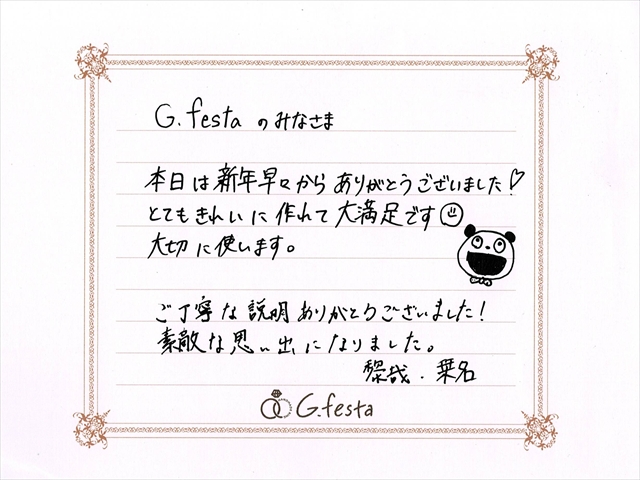 G.festa のみなさま
本日は新年早々からありがとうございました!♡
とてもきれいに作れて大満足です☺
大切に使います。
ご丁寧な説明ありがとうございました!
素敵な思い出になりました。
黎哉・栞名
G.festa